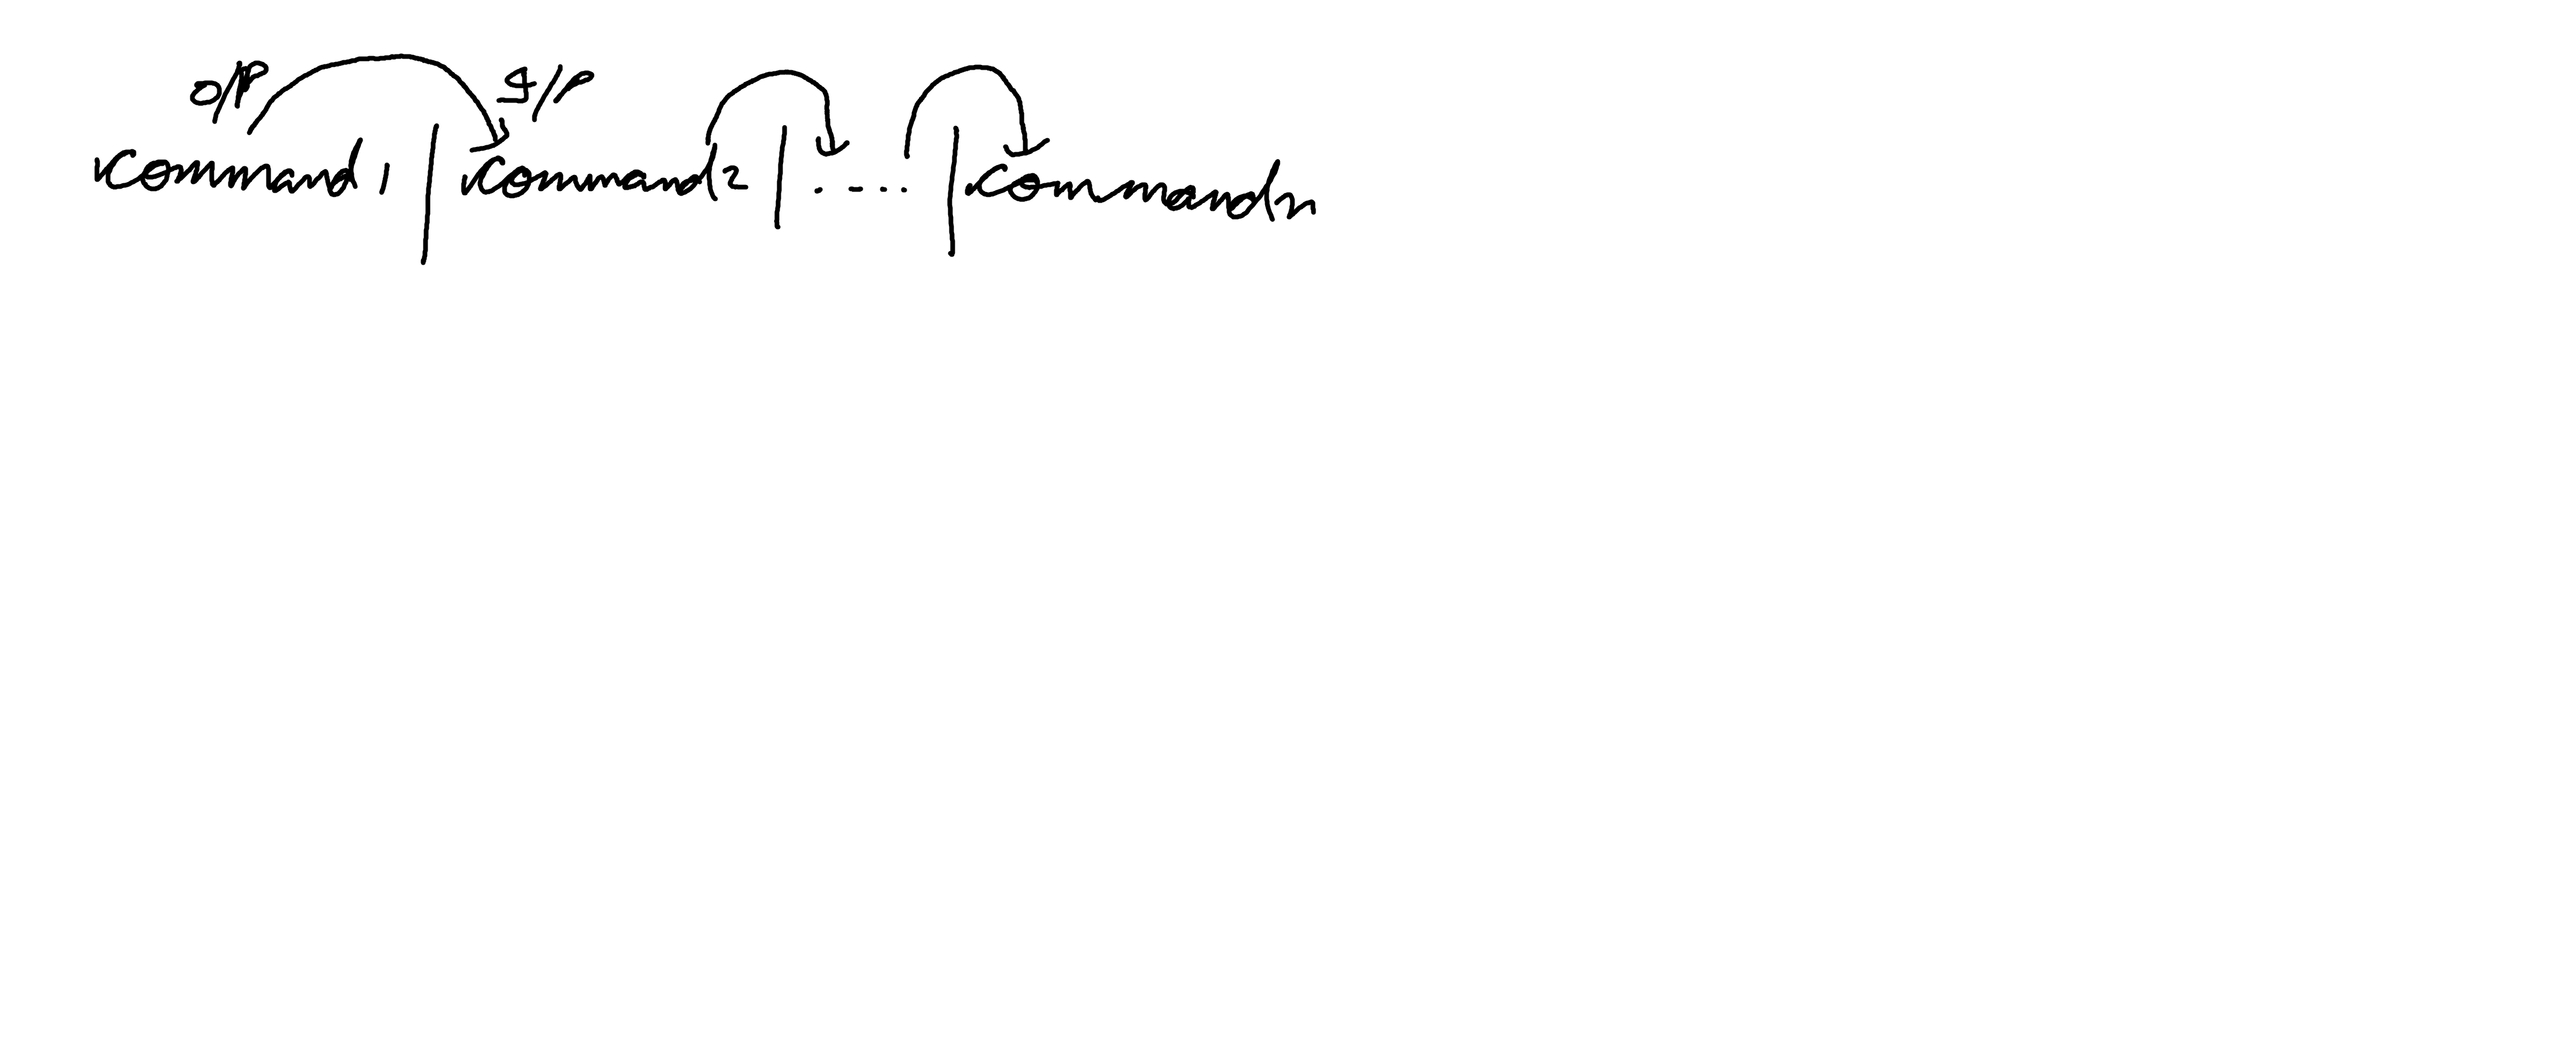 O/P I/P
command1 | command2 | .... | commandn